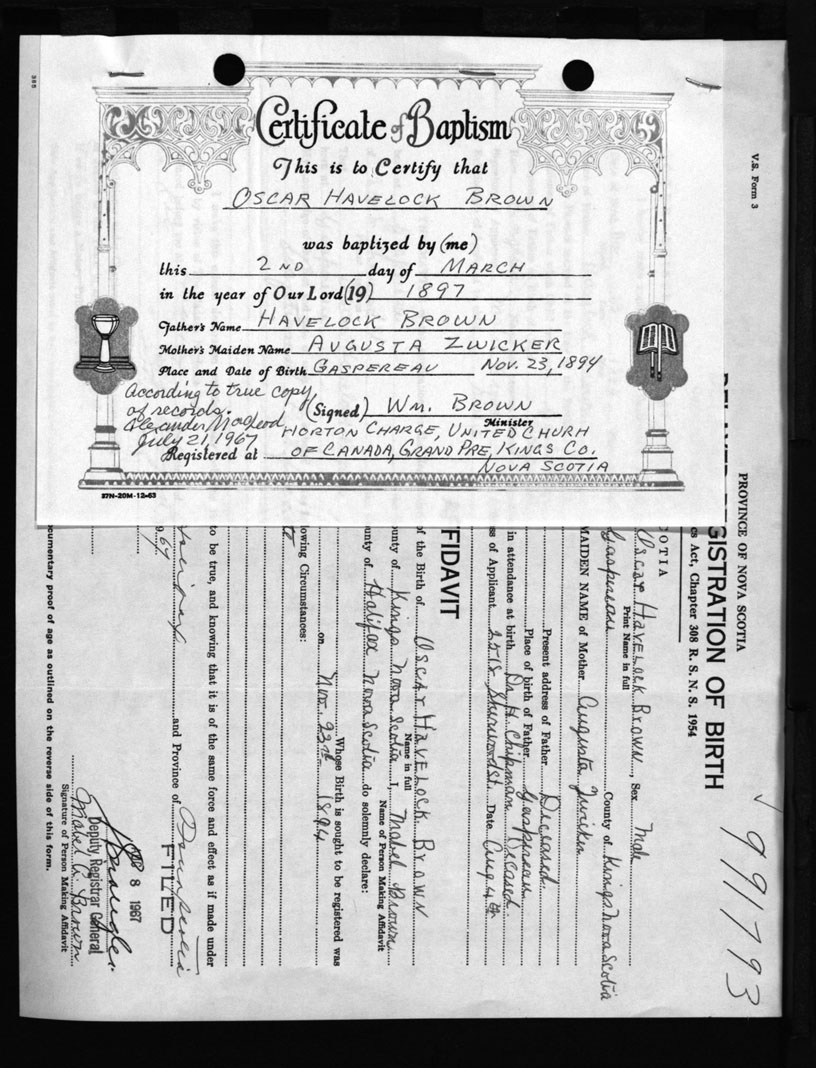 385
V.S. Form 3
Certificate of Baptism
This is to Certify that
OSCAR HAVELOCK BROWN
was baptized by (me)
this 2ND day of MARCH
in the year of Our Lord (19) 1897
Father's Name HAVELOCK BROWN
Mother's Maiden Name AUGUSTA ZWICKER
Place and Date of Birth GASPEREAU Nov. 23, 1894
According to true copy
of records.
(Signed) WM. BROWN
Alexander MacLeod
Minister
July 21, 1967
HORTON CHARGE, UNITED CHURH
Registered at OF CANADA, GRAND PRE, KINGS CO.
NOVA SCOTIA
37N-20M-12-63
991793
PROVINCE OF NOVA SCOTIA
GISTRATION OF BIRTH
cs Act, Chapter 308 R. S. N. S. 1954
COTIA
Oscar HAVELOCK BROWN, Sex Male
Print Name in full
Gaspereau County of Kings Nova Scotia
MAIDEN NAME of Mother Augusta Zwicker
Present address of Father Deceased
Place of birth of Father Gaspereau
in attendance at birth Dr. H. Chipman Decased
ss of Applicant 2518 Sherwood St. Date Aug 4th
FIDAVIT
of the Birth of OSCAR HAVELOCK BROWN
Name in full
ounty of Kings Nova Scotia I, Mabel Brown
Name of Person Making Affidavit
unty of Halifax Nova Scotia do solemnly declare:
Whose Birth is sought to be registered was
on Nov. 23rd 1894
owing Circumstances:
to be true, and knowing that it is of the same force and effect as if made under
and Province of
1967
FILED
8 1967
Deputy Registrar General
Mabel C. Brown
Signature of Person Making Affidavit
ocumentary proof of age as outlined on the reverse side of this form.